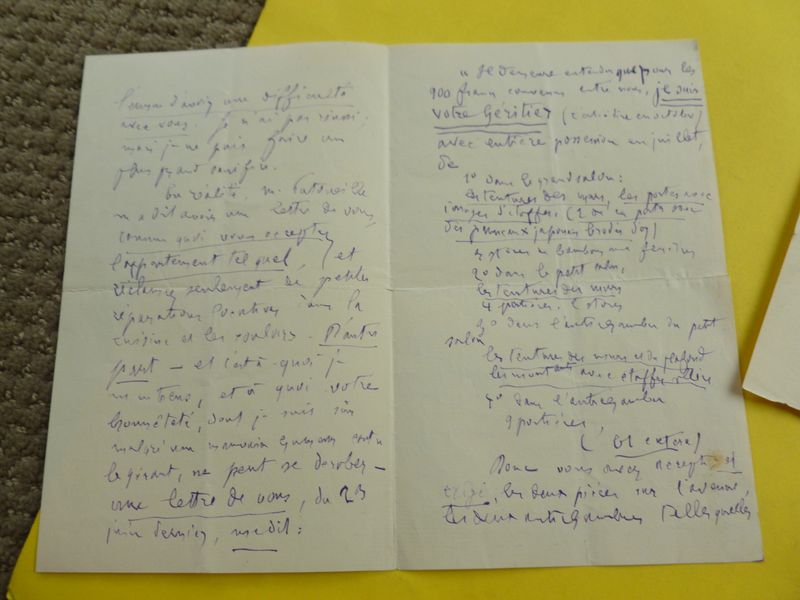 l'ennui d'avoir une difficulté
avec vous. Je n'ai pas réussi;
mais je ne puis faire un
plus grand sacrifice.
En réalité, m.
m'a dit avoir une lettre de vous,
comme quoi vous acceptez
l'appartement tel quel, et
réclamez seulement de petites
réparations locatives dans la
cuisine et les couloirs. D'autre
part — et c'est à quoi je
m'en tiens, et à quoi votre
honnêteté, dont je suis sûr
malgré un mauvais
le gérant, ne peut se dérober —
une lettre de vous, du 23
juin dernier, me dit:
" Il demeure entendu que pour les
900 francs convenus entre nous, je suis
votre héritier (c'est-à-dire en octobre)
avec entière possession en juillet,
de
1º dans le grand salon:
les tentures des murs, les portes avec
(2
des panneaux japonais brodés d'or)
4 stores en bambou aux fenêtres
2º dans le petit salon,
les tentures des murs
4 portières. 2 stores
3º dans l'antichambre du petit
salon
les tentures des murs et du plafond
les montants avec étoffes
4º dans l'antichambre
9 portières,
(et extera)
Donc vous avez accepté et
les deux pièces sur l'avenue,
les deux antichambres telles quelles